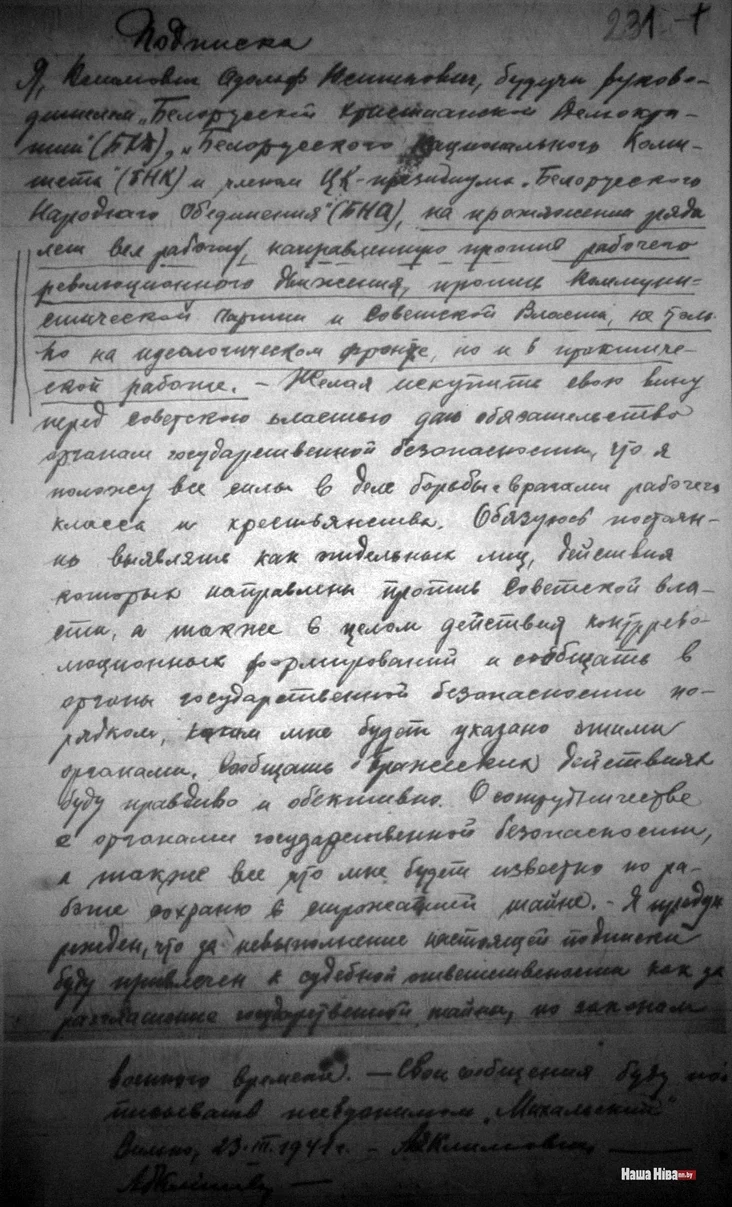 231
Подписка
Я, Климович Адольф Иосипович, будучи руково-
дителем „Белорусской Христианской Демокра-
тии" (БХД), „Белорусского Национального Коми-
тета" (БНК) и членом ЦК-президиума „Белорусского
Народнаго Объединения" (БНА), на протяжении ряда
лет вел работу, направленную против рабочего
революционного движения, против Коммуни-
стической партии и Советской Власти, не толь-
ко на идеологическом фронте, но и в практиче-
ской работе. – Желая искупить свою вину
перед советскою властью даю обязательство
органам государственной безопасности, что я
положу все силы в деле борьбы с врагами рабочего
класса и крестьянства. Обязуюсь постоян-
но выявлять как отдельных лиц, действия
которых направлены против Советской вла-
сти, а также в целом действия контррево-
люционных формирований и сообщать в
органы государственной безопасности по-
рядком, каким мне будет указано этими
органами. Сообщать о вражеских действиях
буду правдиво и обективно. О сотрудничестве
с органами государственной безопасности,
а также все что мне будет известно по ра-
боте сохраню в строжайшей тайне. – Я предуп
режден, что за невыполнение настоящей подписки
буду привлечен к судебной ответственности как за
разглашение государственной тайны, по законам
военного времени. – Свои сообщения буду под
писывать псевдонимом „Михальский"
Вильно, 23.III.1941 г. – АКлимович
Наша Ніва nn.by